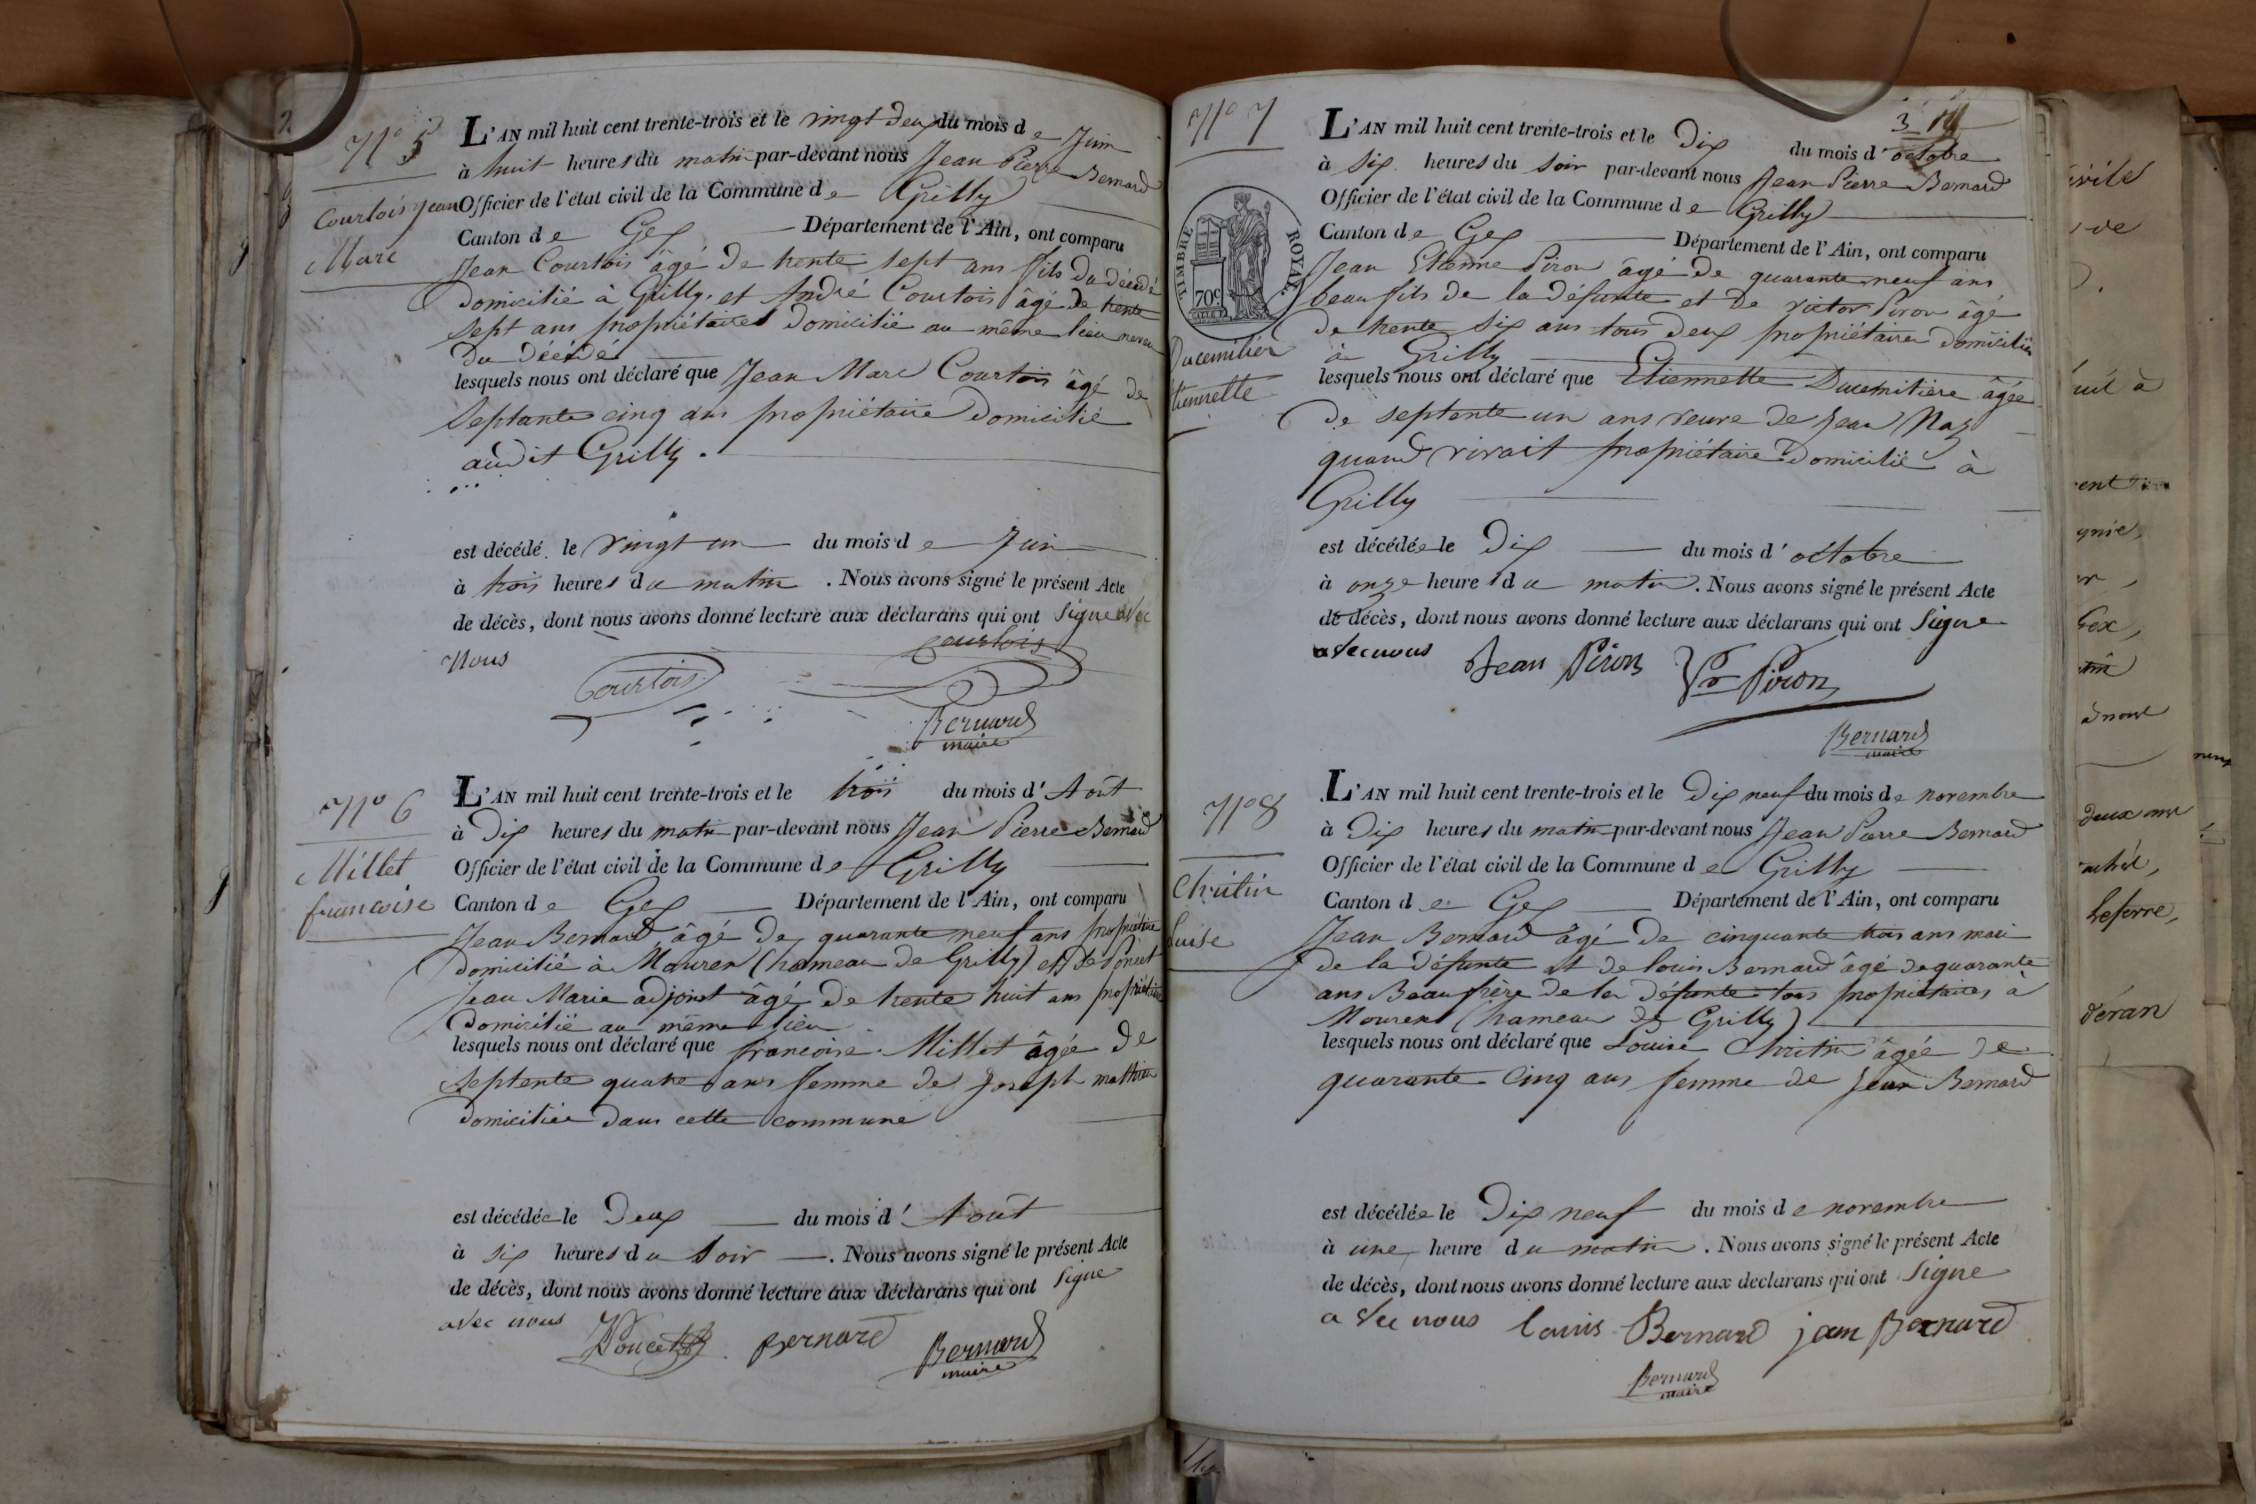 N° 5
Courtois Jean
Marc
L'AN mil huit cent trente-trois et le vingt deux du mois de Juin
à huit heures du matin par-devant nous Jean Pierre Bernard
Officier de l'état civil de la Commune de Grilly
Canton de Gex Département de l'Ain, ont comparu
Jean Courtois âgé de trente sept ans fils du décédé
domicilié à Grilly. et André Courtois âgé de trente
sept ans propriétaires domicilié au même lieu neveu
du décédé
lesquels nous ont déclaré que Jean Marc Courtois âgé de
septante cinq ans propriétaire domicilié
audit Grilly.
est décédé le vingt un du mois de Juin
à trois heures du matin. Nous avons signé le présent Acte
de décès, dont nous avons donné lecture aux déclarans qui ont signé avec
nous
Courtois
Courtois
Bernard
maire
N° 6
Millet
francoise
L'AN mil huit cent trente-trois et le trois du mois d'Août
à Dix heures du matin par-devant nous Jean Pierre Bernard
Officier de l'état civil de la Commune de Grilly
Canton de Gex Département de l'Ain, ont comparu
Jean Bernard âgé de quarante neuf ans propriétaire
domicilié à Mourex (hameau de Grilly) et de Poncet
Jean Marie adjoint âgé de trente huit ans propriétaire
domicilié au même lieu
lesquels nous ont déclaré que francoise Millet âgée de
septente quatre ans femme de Joseph mathieu
domiciliée dans cette commune
est décédée le Deux du mois d'Août
à six heures du soir. Nous avons signé le présent Acte
de décès, dont nous avons donné lecture aux déclarans qui ont signé
avec nous
Poncet Bernard Bernard
maire
N° 7
3
TIMBRE ROYAL
70c
Ducimitière
Etiennette
L'AN mil huit cent trente-trois et le Dix du mois d'octobre
à six heures du soir par-devant nous Jean Pierre Bernard
Officier de l'état civil de la Commune de Grilly
Canton de Gex Département de l'Ain, ont comparu
Jean Etienne Piron âgé de quarante neuf ans
beau fils de la défunte et de victor Piron âgé
de trente six ans tous deux propriétaires domiciliés
à Grilly
lesquels nous ont déclaré que Etiennette Ducimitière âgée
de septente un ans veuve de Jean Naz
quand vivait propriétaire domicilié à
Grilly
est décédée le Dix du mois d'octobre
à onze heures du matin. Nous avons signé le présent Acte
de décès, dont nous avons donné lecture aux déclarans qui ont signé
avec nous
Jean Piron Vor Piron
Bernard
maire
N° 8
Chritin
Luise
L'AN mil huit cent trente-trois et le Dix neuf du mois de novembre
à Dix heures du matin par-devant nous Jean Pierre Bernard
Officier de l'état civil de la Commune de Grilly
Canton de Gex Département de l'Ain, ont comparu
Jean Bernard âgé de cinquante trois ans mari
de la défunte et de louis Bernard âgé de quarante
ans Beau frère de la défunte tous propriétaires à
Mourex (hameau de Grilly)
lesquels nous ont déclaré que Louise Chritin âgée de
quarante cinq ans femme de Jean Bernard
est décédée le Dix neuf du mois de novembre
à une heure du matin. Nous avons signé le présent Acte
de décès, dont nous avons donné lecture aux déclarans qui ont signé
avec nous louis Bernard jean Bernard
Bernard
maire